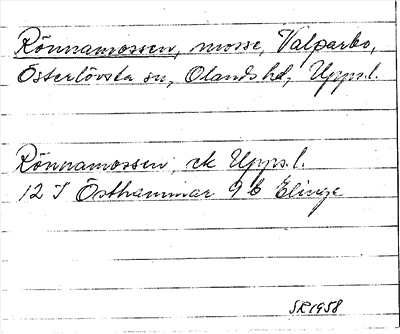 Rönnamossen, mosse, Valparbo,
Österlövsta sn, Olands hd, Upps. l.
Rönnamossen, ek Upps. l.
12 I Östhammar 9 b Elinge
SR 1958